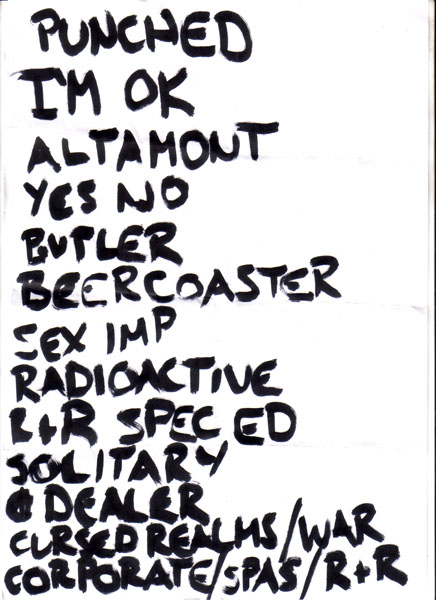 PUNCHED
I'M OK
ALTAMONT
YES NO
BUTLER
BEERCOASTER
SEX IMP
RADIOACTIVE
R+R SPEC ED
SOLITARY
@ DEALER
CURSED REALMS/WAR
CORPORATE/SPAS/R+R